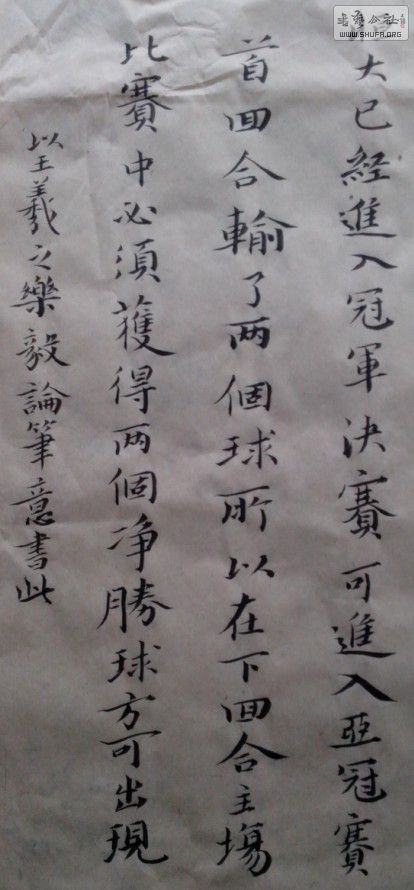 大已經進入冠軍決賽可進入亞冠賽
首回合輸了两個球所以在下回合主場
比賽中必須獲得两個净勝球方可出現
以王羲之樂毅論筆意書此
书法公社
WWW.SHUFA.ORG